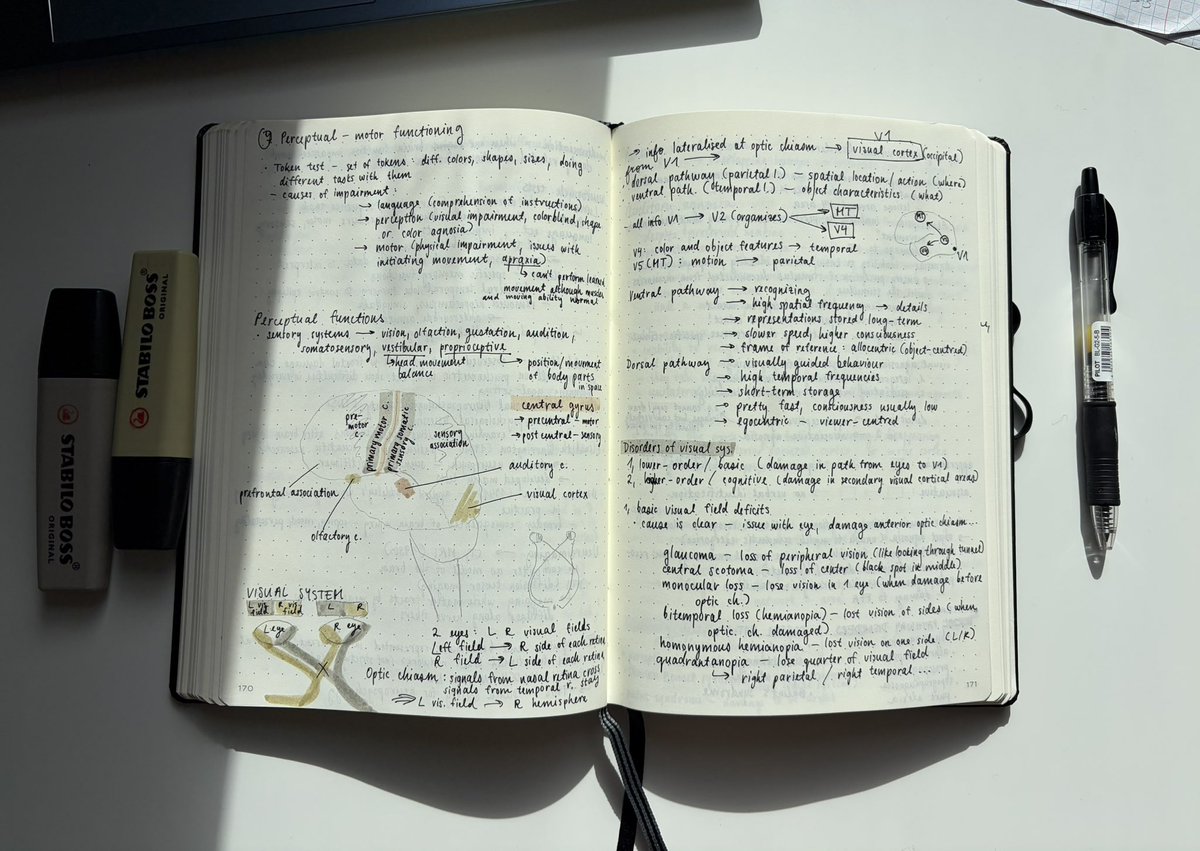 9 Perceptual – motor functioning
· Token test – set of tokens : diff. colors, shapes, sizes, doing
different tasks with them
– causes of impairment :
→ language (comprehension of instructions)
→ perception (visual impairment, colorblind, shape
or color agnosia)
→ motor (physical impairment, issues with
initiating movement, apraxia)
↳ can't perform learned
movement although muscles
and moving ability normal
Perceptual functions
· sensory systems → vision, olfaction, gustation, audition,
somatosensory, vestibular, proprioceptive
↳ head movement
balance
→ position/movement
of body parts
in space
pre-
motor
c.
primary motor c.
primary somatic
sensory c.
sensory
association
central gyrus
→ precentral – motor
→ post central – sensory
auditory c.
visual cortex
prefrontal association
olfactory c.
VISUAL SYSTEM
L vis. field
R vis. field
L R
L eye
R eye
2 eyes : L R visual fields
Left field → R side of each retina
R field → L side of each retina
Optic chiasm : signals from nasal retina cross
signals from temporal r. stay
⇒ L vis. field → R hemisphere
170
V1
→ info lateralised at optic chiasm → visual cortex (occipital)
from V1 →
dorsal pathway (parietal l.) – spatial location / action (where)
ventral path. (temporal l.) – object characteristics (what)
– all info V1 → V2 (organizes)
MT
V4
MT
V4
V1
V4 : color and object features → temporal
V5 (MT) : motion → parietal
Ventral pathway → recognizing
→ high spatial frequency → details
→ representations stored long-term
→ slower speed, higher consciousness
→ frame of reference : allocentric (object-centred)
Dorsal pathway → visually guided behaviour
→ high temporal frequencies
→ short-term storage
→ pretty fast, consciousness usually low
→ egocentric – viewer-centred
Disorders of visual sys.
1, lower-order / basic (damage in path from eyes to V1)
2, higher-order / cognitive (damage in secondary visual cortical areas)
1, basic visual field deficits
· cause is clear – issue with eye, damage anterior optic chiasm...
glaucoma – loss of peripheral vision (like looking through tunnel)
central scotoma – loss of center (black spot in middle)
monocular loss – lose vision in 1 eye (when damage before
optic ch.)
bitemporal loss (hemianopia) – lost vision of sides (when
optic. ch. damaged)
homonymous hemianopia – lost vision on one side (L/R)
quadrantanopia – lose quarter of visual field
↳ right parietal / right temporal ...
171
STABILO BOSS
ORIGINAL
STABILO BOSS
ORIGINAL
PILOT BL-G2-5-B